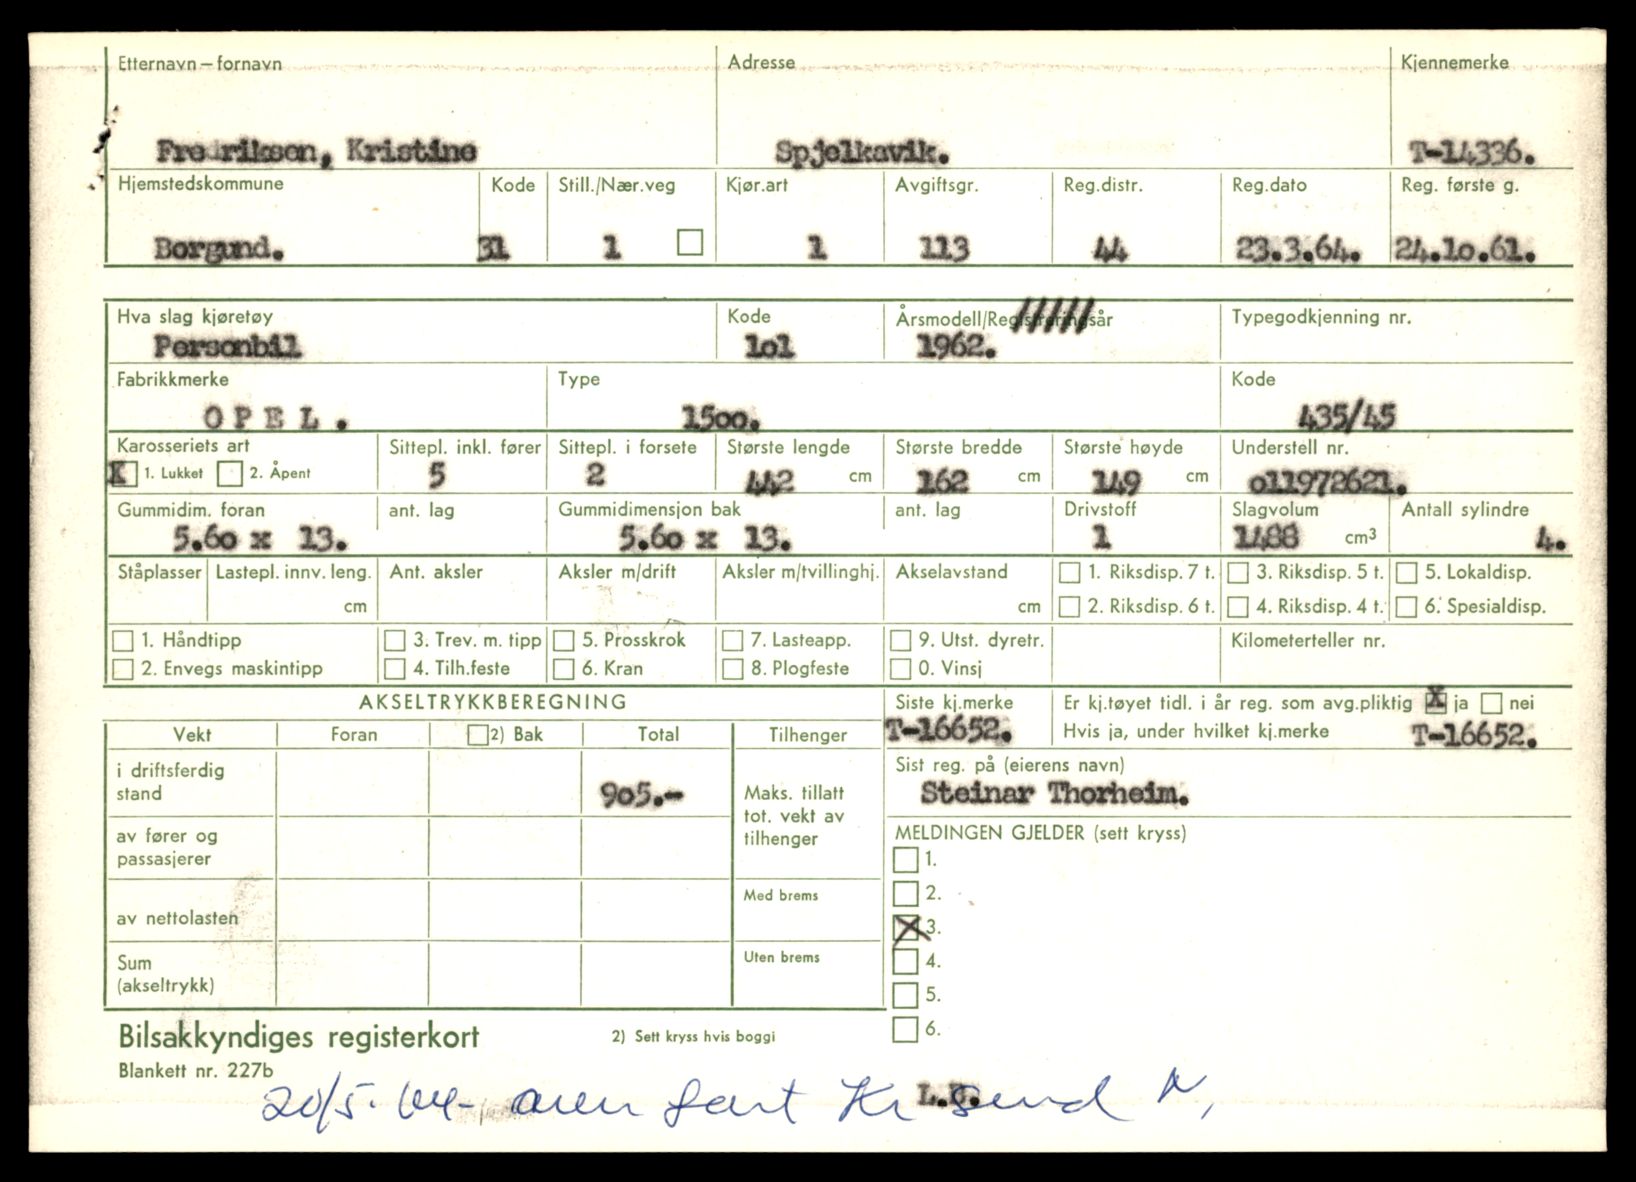 Etternavn – fornavn Adresse Kjennemerke
Fredrikson, Kristine Spjelkavik. T-14336.
Hjemstedskommune Kode Still./Nær.veg Kjør.art Avgiftsgr. Reg.distr. Reg.dato Reg. første g.
Borgund. 31 1 1 113 44 23.3.64. 24.1o.61.
Hva slag kjøretøy Kode Årsmodell/Registreringsår Typegodkjenning nr.
Personbil 1o1 1962.
Fabrikkmerke Type Kode
O P E L . 15oo. 435/45
Karosseriets art Sittepl. inkl. fører Sittepl. i forsete Største lengde Største bredde Største høyde Understell nr.
X 1. Lukket 2. Åpent 5 2 442 cm 162 cm 149 cm o11972621.
Gummidim. foran ant. lag Gummidimensjon bak ant. lag Drivstoff Slagvolum Antall sylindre
5.6o x 13. 5.6o x 13. 1 1488 cm³ 4.
Ståplasser Lastepl. innv. leng. Ant. aksler Aksler m/drift Aksler m/tvillinghj. Akselavstand 1. Riksdisp. 7 t. 3. Riksdisp. 5 t. 5. Lokaldisp.
cm cm 2. Riksdisp. 6 t. 4. Riksdisp. 4 t. 6. Spesialdisp.
1. Håndtipp 3. Trev. m. tipp 5. Prosskrok 7. Lasteapp. 9. Utst. dyretr. Kilometerteller nr.
2. Envegs maskintipp 4. Tilh.feste 6. Kran 8. Plogfeste 0. Vinsj
AKSELTRYKKBEREGNING Siste kj.merke Er kj.tøyet tidl. i år reg. som avg.pliktig X ja nei
Vekt Foran 2) Bak Total Tilhenger T-16652. Hvis ja, under hvilket kj.merke T-16652.
i driftsferdig stand 905.- Maks. tillatt tot. vekt av tilhenger Sist reg. på (eierens navn)
Steinar Thorheim.
av fører og passasjerer MELDINGEN GJELDER (sett kryss)
1.
av nettolasten Med brems 2.
X 3.
Sum (akseltrykk) Uten brems 4.
5.
6.
Bilsakkyndiges registerkort 2) Sett kryss hvis boggi
Blankett nr. 227b
20/5-64- Kr send N,